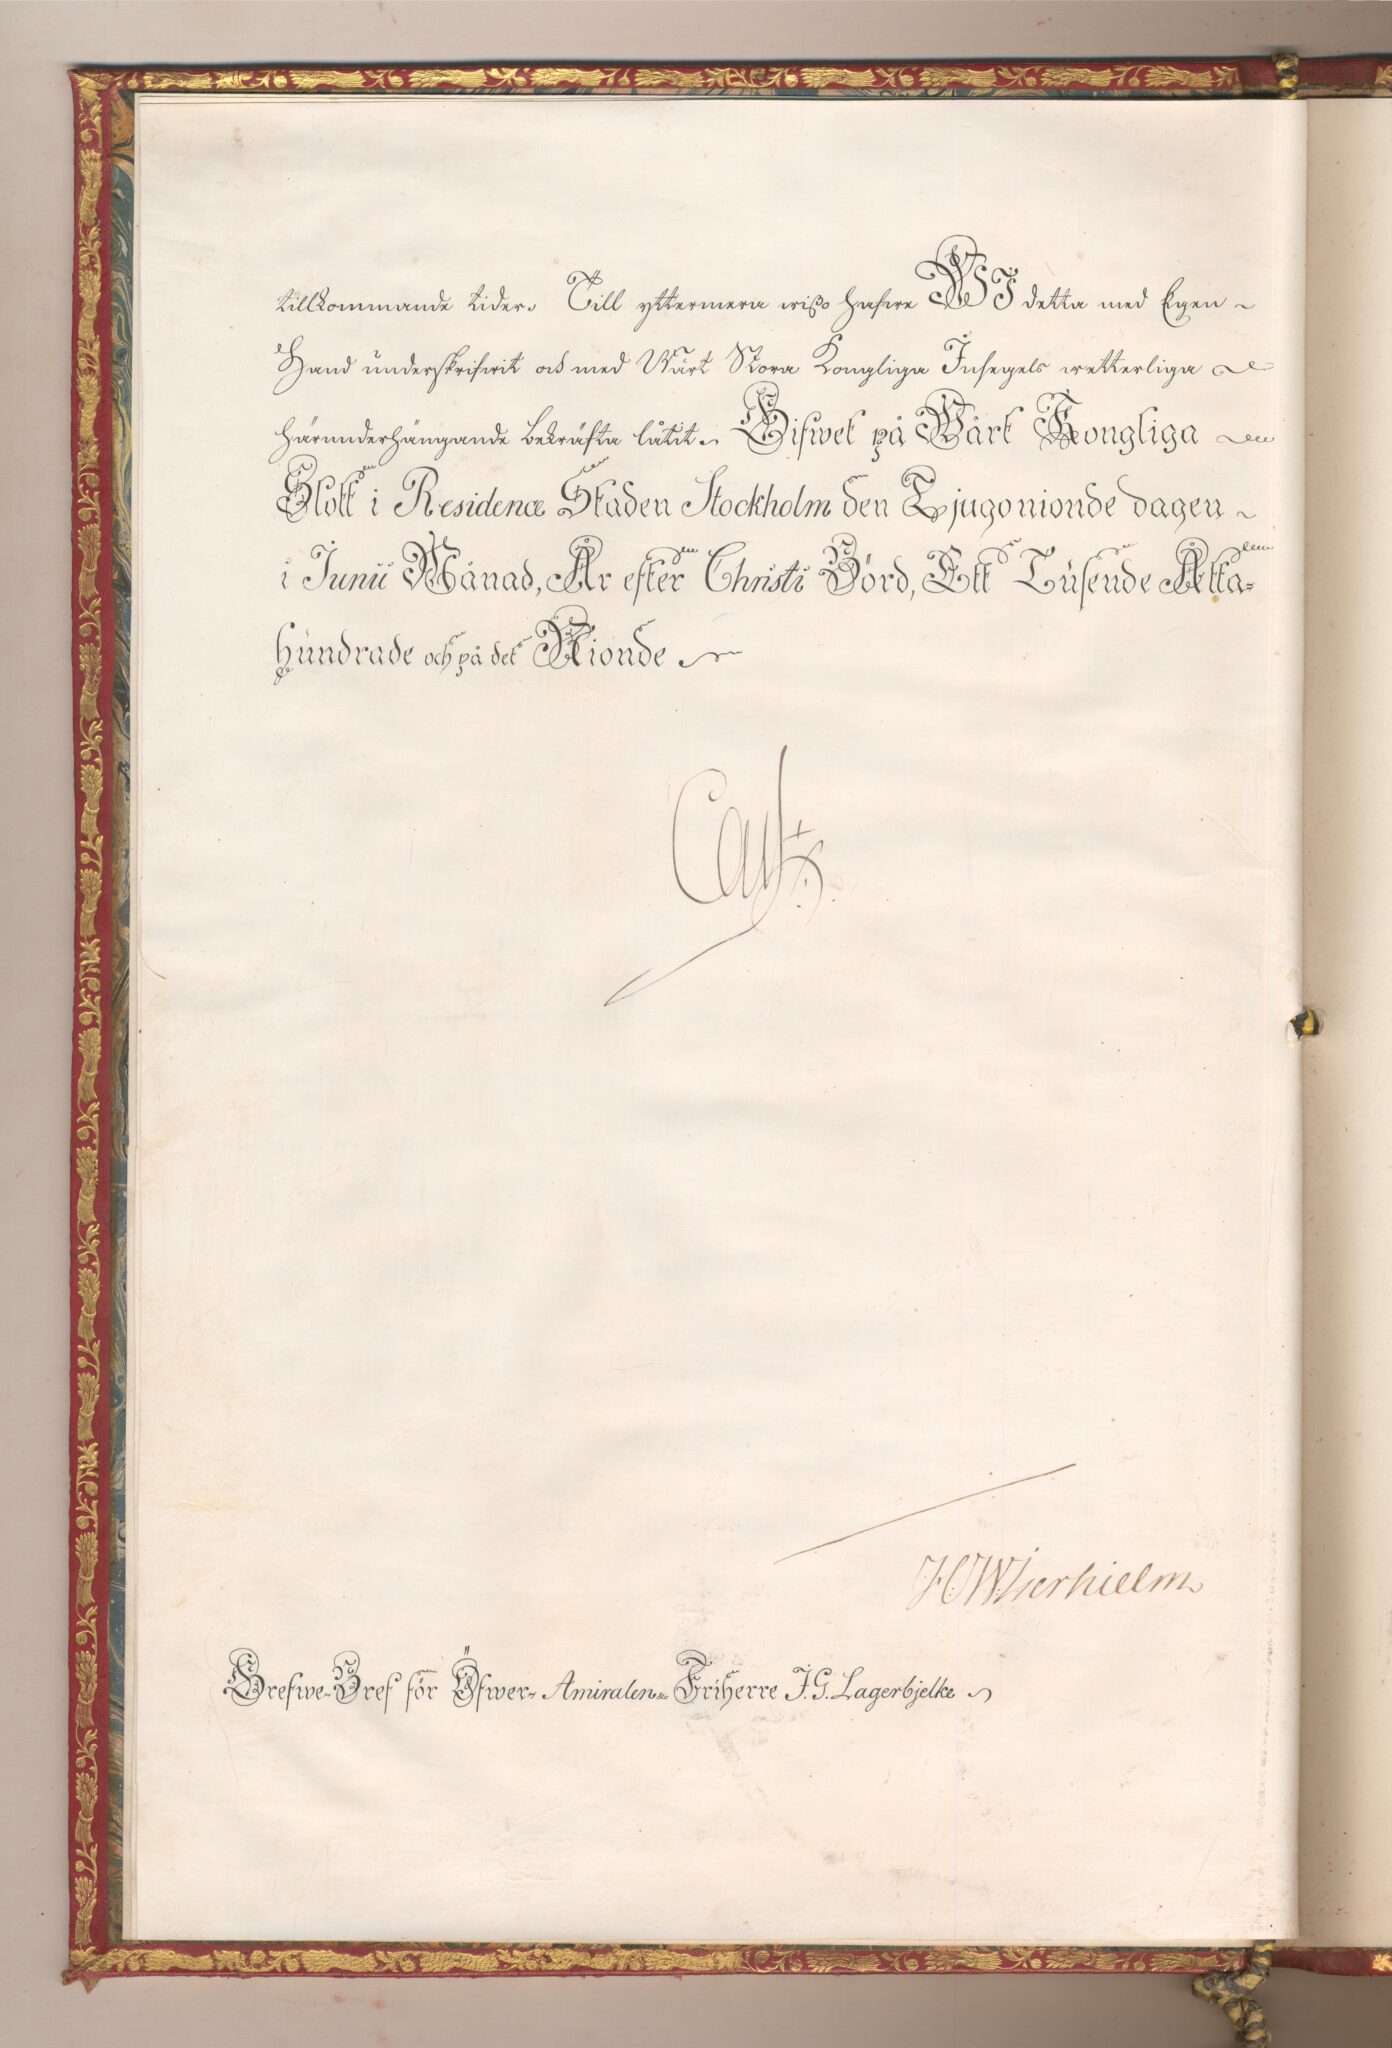 tillkommande tider. Till yttermera wißo hafwe WJ detta med Egen
Hand underskrifwit och med Wårt Stora Kongliga Insegels wetterliga
härunderhängande bekräfta låtit. Gifwet på Wårt Kongliga
Slott i Residence Staden Stockholm den Tjugonionde dagen
i Junii Månad, År efter Christi Börd, Ett Tusende Åtta-
hundrade och på det Nionde.
Carl
Grefwe-Bref för Öfwer-Amiralen Friherre J. G. Lagerbjelke